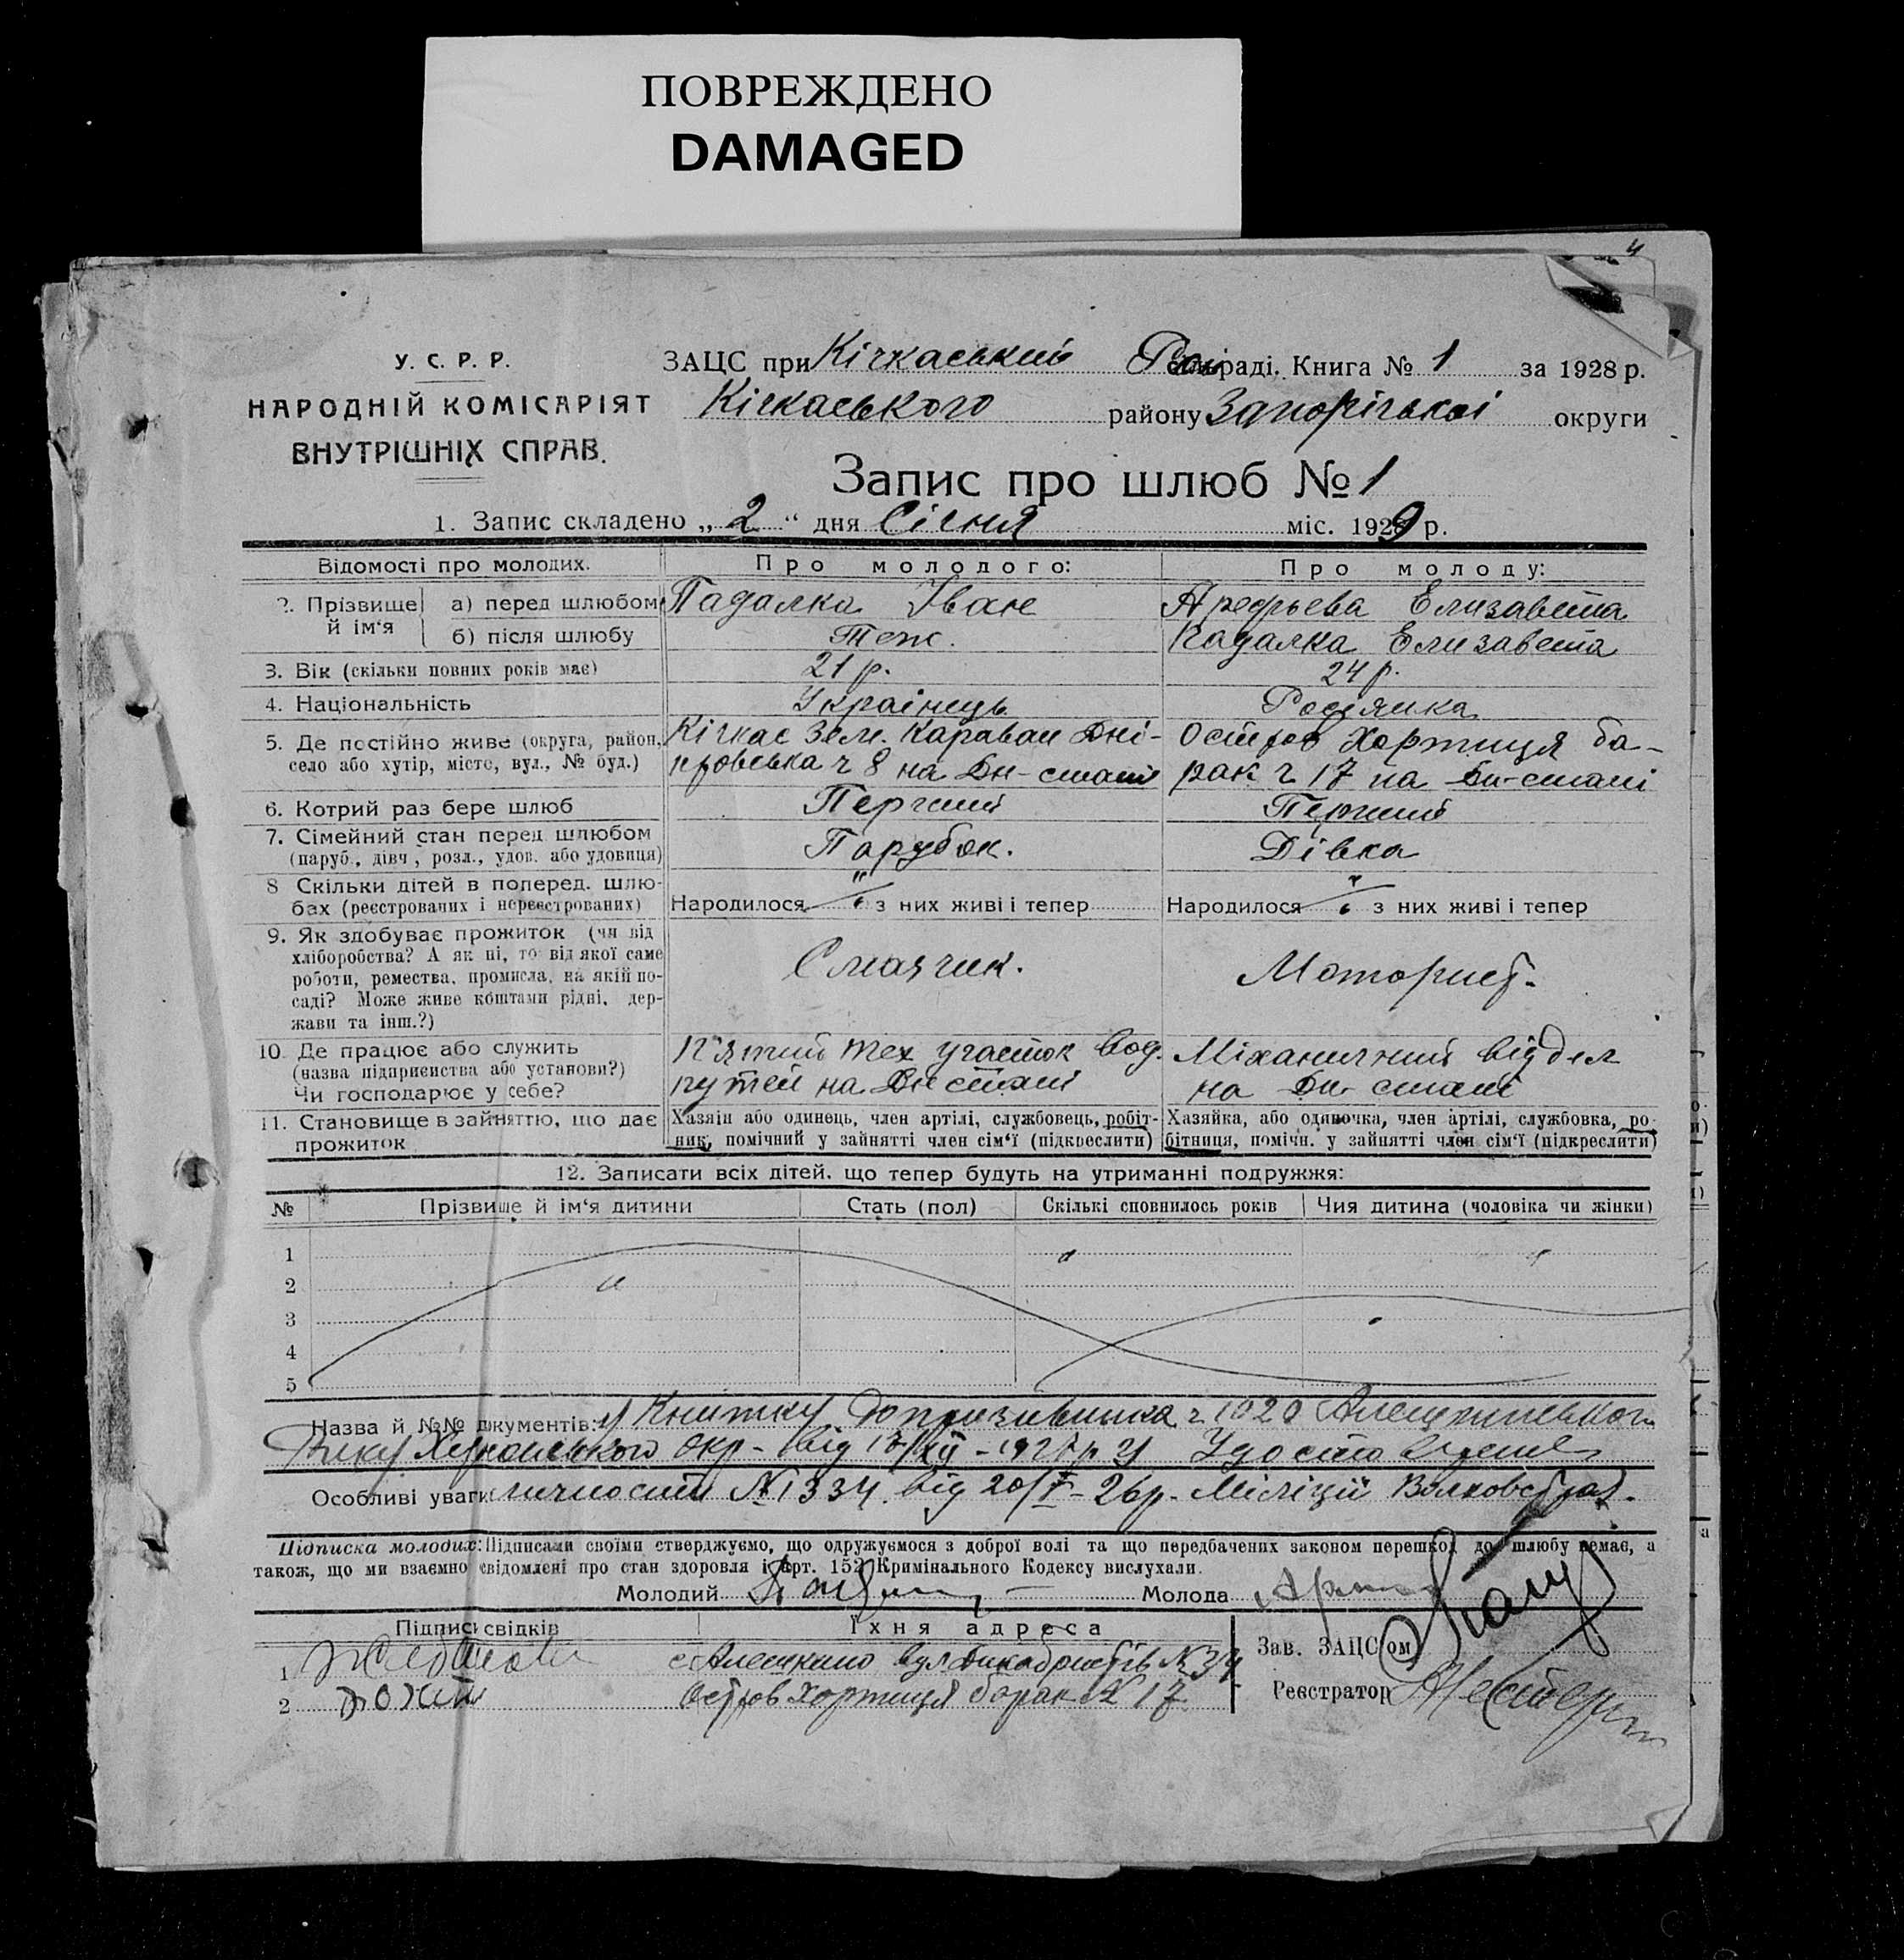 ПОВРЕЖДЕНО
DAMAGED
4
У. С. Р. Р.
НАРОДНІЙ КОМІСАРІЯТ
ВНУТРІШНІХ СПРАВ.
ЗАЦС при Кічкаський раді. Книга № 1 за 1928 р.
Кічкаського району Запорізької округи
Запис про шлюб № 1
1. Запис складено „ 2 “ дня Січня міс. 1929 р.
Відомості про молодих. Про молодого: Про молоду:
2. Прізвище й ім‘я а) перед шлюбом Падалка Іван Арефьева Елизавета
б) після шлюбу Теж. Падалка Елизавета
3. Вік (скільки повних років має) 21 р. 24 р.
4. Національність Українець Росіянка
5. Де постійно живе (округа, район, Кічкас Зем. Караван Дні- Остров Хортиця ба-
село або хутір, місто, вул., № буд.) провська ч 8 на Дн-стані рак ч 17 на Дн-стані
6. Котрий раз бере шлюб Перший Перший
7. Сімейний стан перед шлюбом Парубок. Дівка
(паруб., дівч., розл., удов. або удовиця)
8 Скільки дітей в поперед. шлю-
бах (реєстрованих і нереєстрованих) Народилося з них живі і тепер Народилося з них живі і тепер
9. Як здобуває прожиток (чи від
хліборобства? А як ні, то від якої саме Смазчик. Моторист.
роботи, ремества, промисла, на якій по-
саді? Може живе коштами рідні, дер-
жави та інш.?)
10. Де працює або служить П'ятий тех участок вод. Міханичний відділ
(назва підприємства або установи?) путей на Дн стані на Дн-стані
Чи господарює у себе?
11. Становище в зайняттю, що дає Хазяїн або одинець, член артілі, службовець, робіт- Хазяйка, або одиночка, член артілі, службовка, ро-
прожиток ник, помічний у зайнятті член сім‘ї (підкреслити) бітниця, помічн. у зайнятті член сім‘ї (підкреслити)
12. Записати всіх дітей, що тепер будуть на утриманні подружжя:
№ Прізвище й ім‘я дитини Стать (пол) Скількі сповнилось років Чия дитина (чоловіка чи жінки)
1
2
3
4
5
Назва й №№ документів: Книжку допризивника ч 1020
Херсонського Окр. від
Особливі уваги: личности № 1334. від 20/V - 26р. Міліції
Підписка молодих: Підписами своїми стверджуємо, що одружуємося з доброї волі та що передбачених законом перешкод до шлюбу немає, а
також, що ми взаємно свідомлені про стан здоровля і арт. 152 Кримінального Кодексу вислухали.
Молодий Молода
Підписи свідків Їхня адреса
1 с Алешкино вул Декабристів № 34 Зав. ЗАЦС ом
2 Остров Хортиця барак № 17 Реєстратор